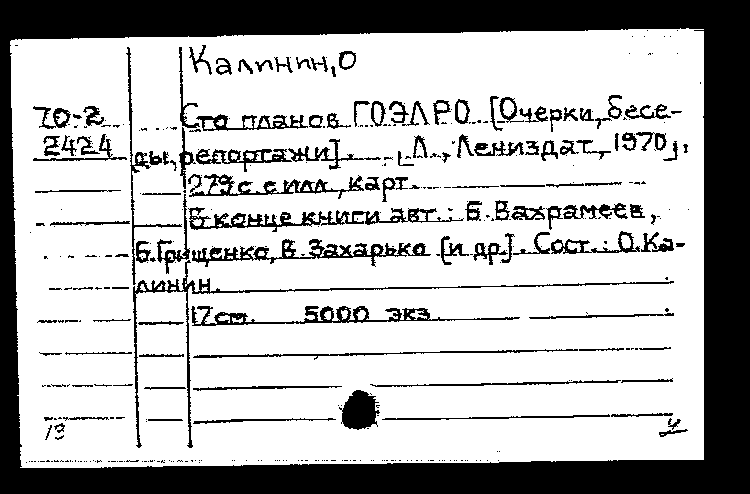 Калинин, О
70-2 Сто планов ГОЭЛРО [Очерки, бесе-
2424 ды, репортажи]. [Л., Лениздат, 1970].
279 с. с илл., карт.
В конце книги авт.: Б. Вахрамеев,
Б. Грищенко, В. Захарько [и др.]. Сост.: О. Ка-
линин.
17 см. 5000 экз.
13